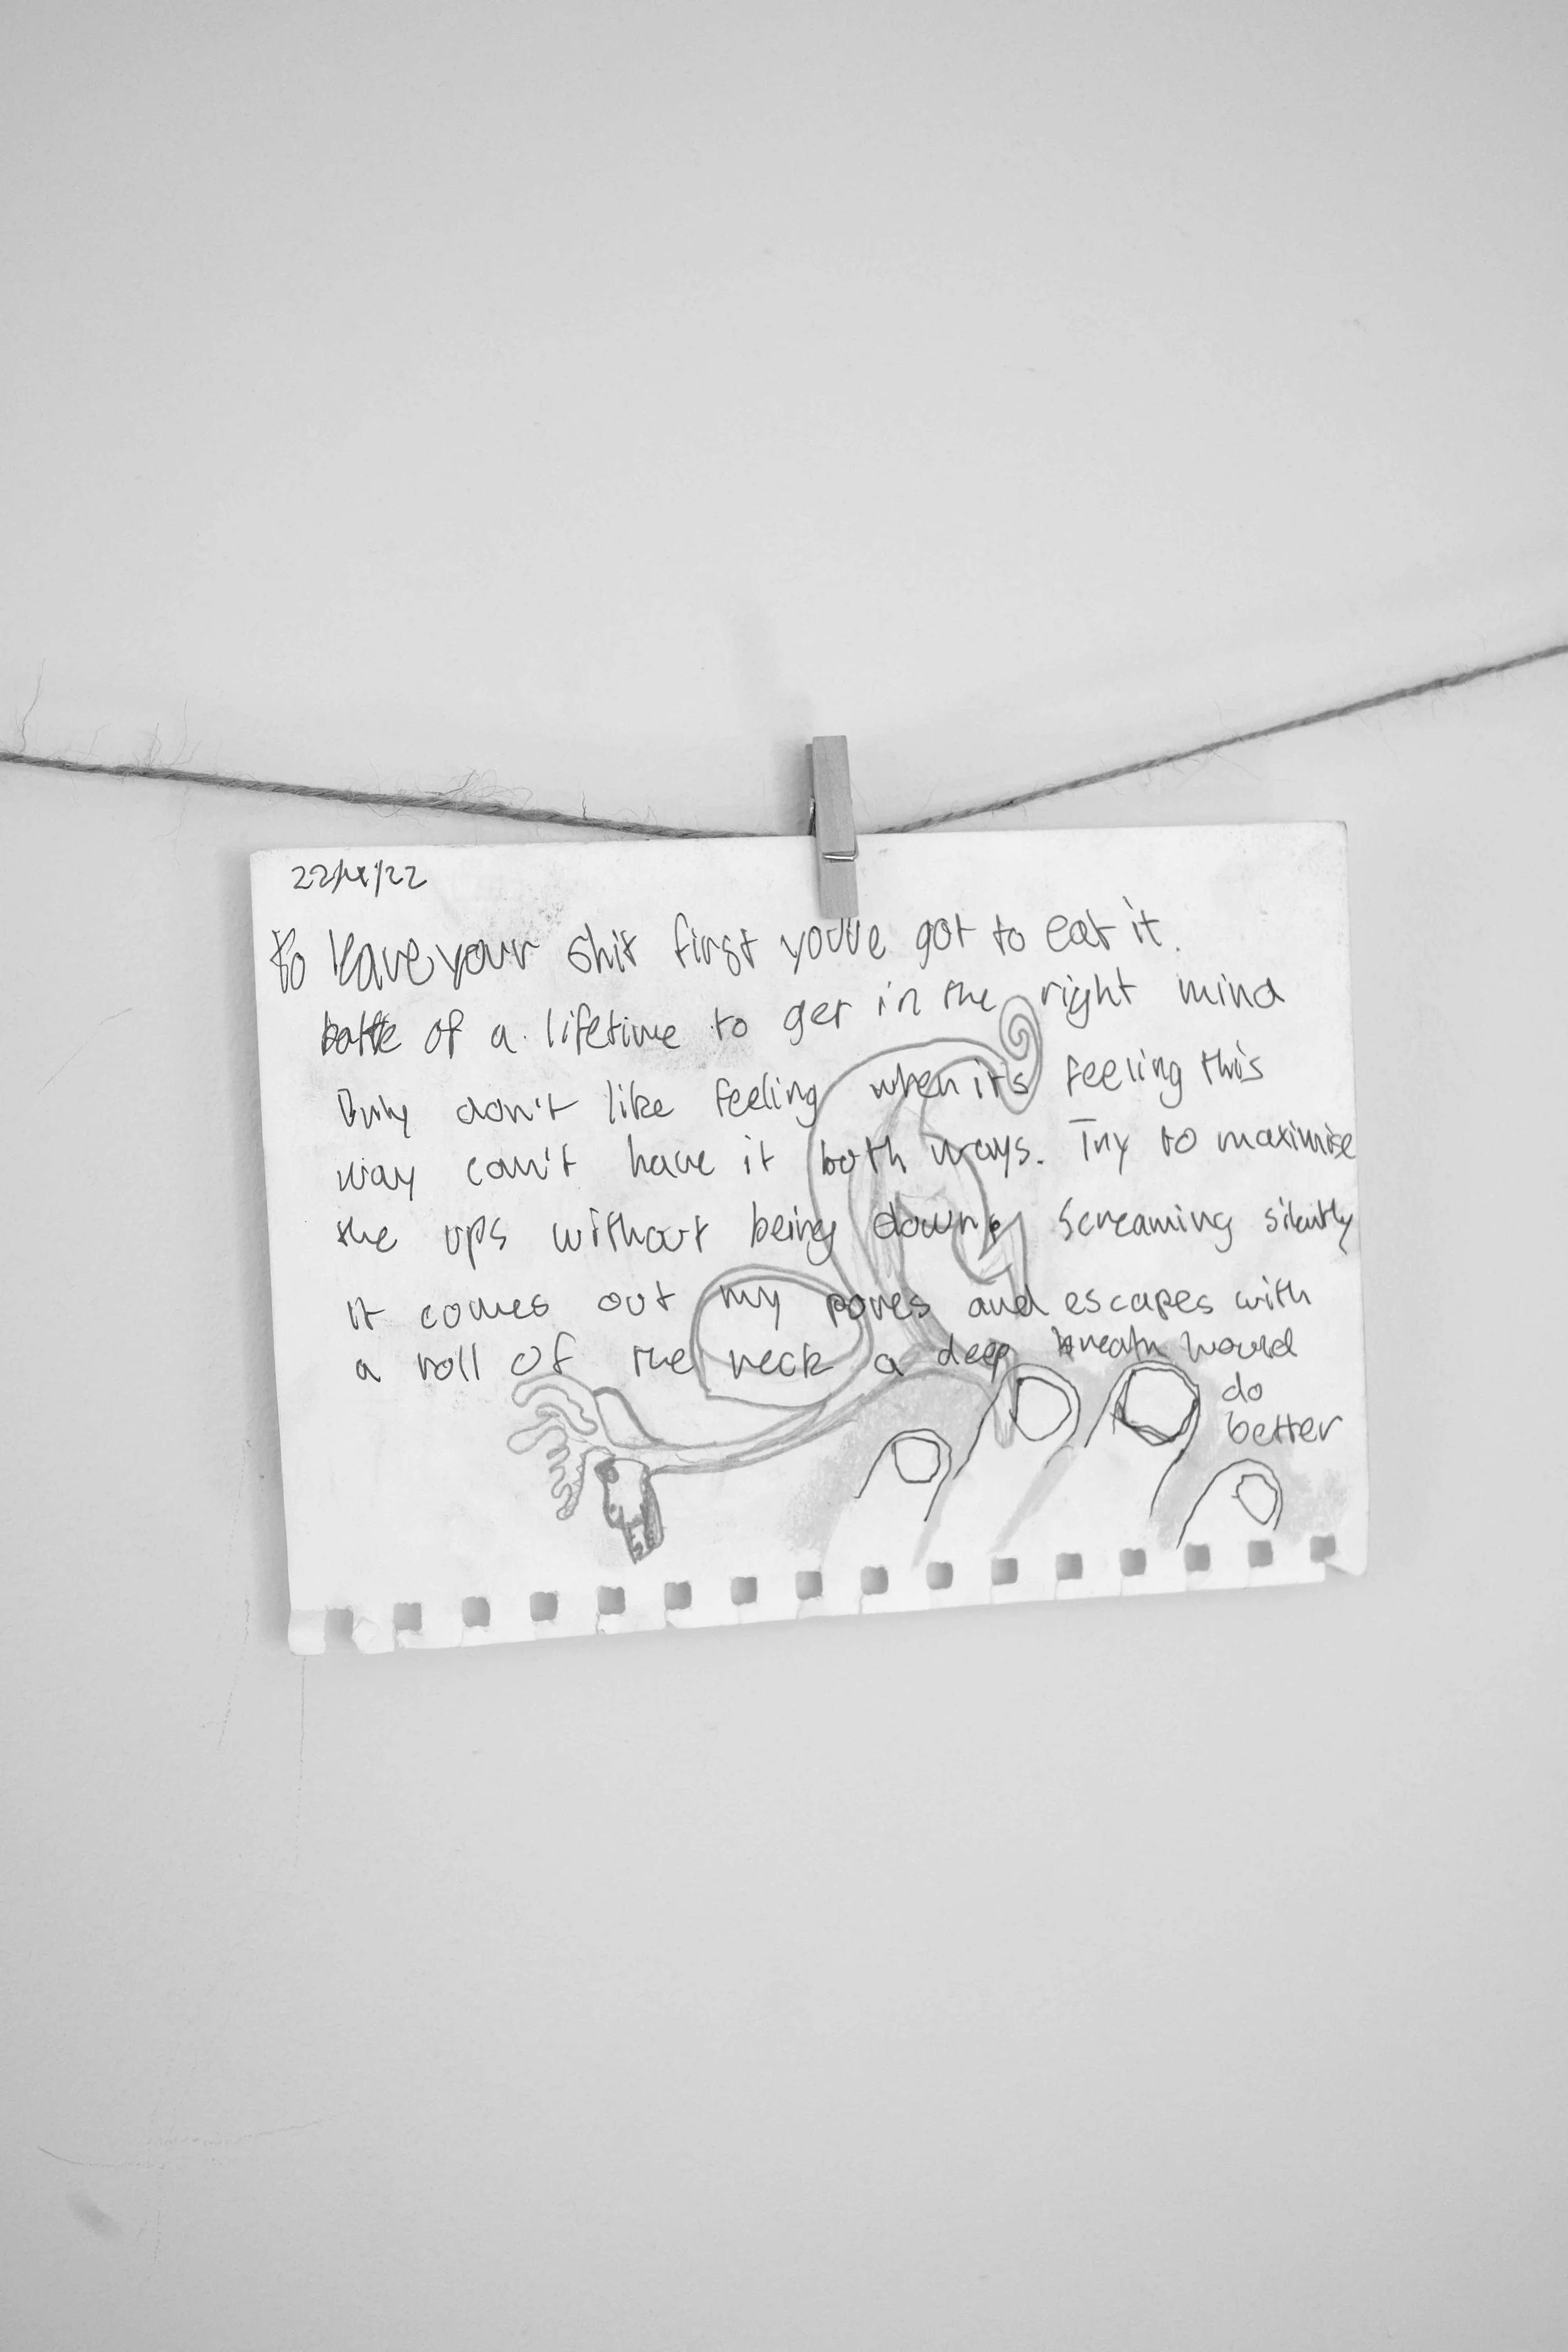 to leave your shit first you've got to eat it.
battle of a lifetime to get in the right mind
Only don't like feeling when it's feeling this
way can't have it both ways. Try to maximise
the ups without being down, screaming silently
it comes out my pores and escapes with
a roll of the neck a deep breath would
do
better